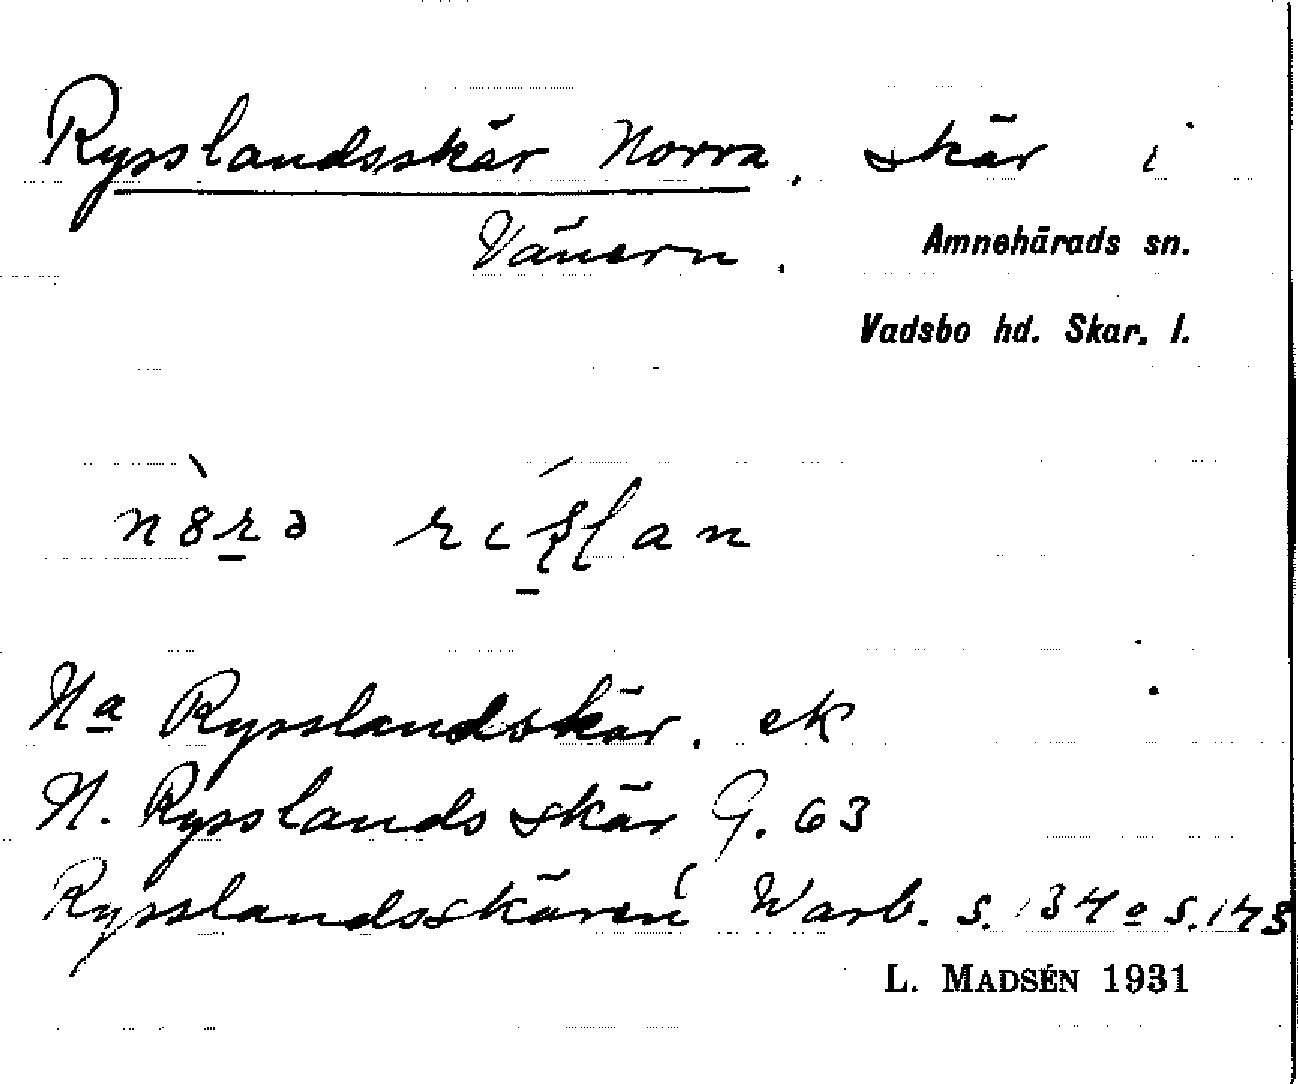 Rysslandsskär Norra. skär i
Vänern.
Amnehärads sn.
Vadsbo hd. Skar. l.
Na Rysslandskär. ek
N. Rysslands skär G. 63
Rysslandsskären Warb. s. 134 o s. 143
L. MADSÉN 1931